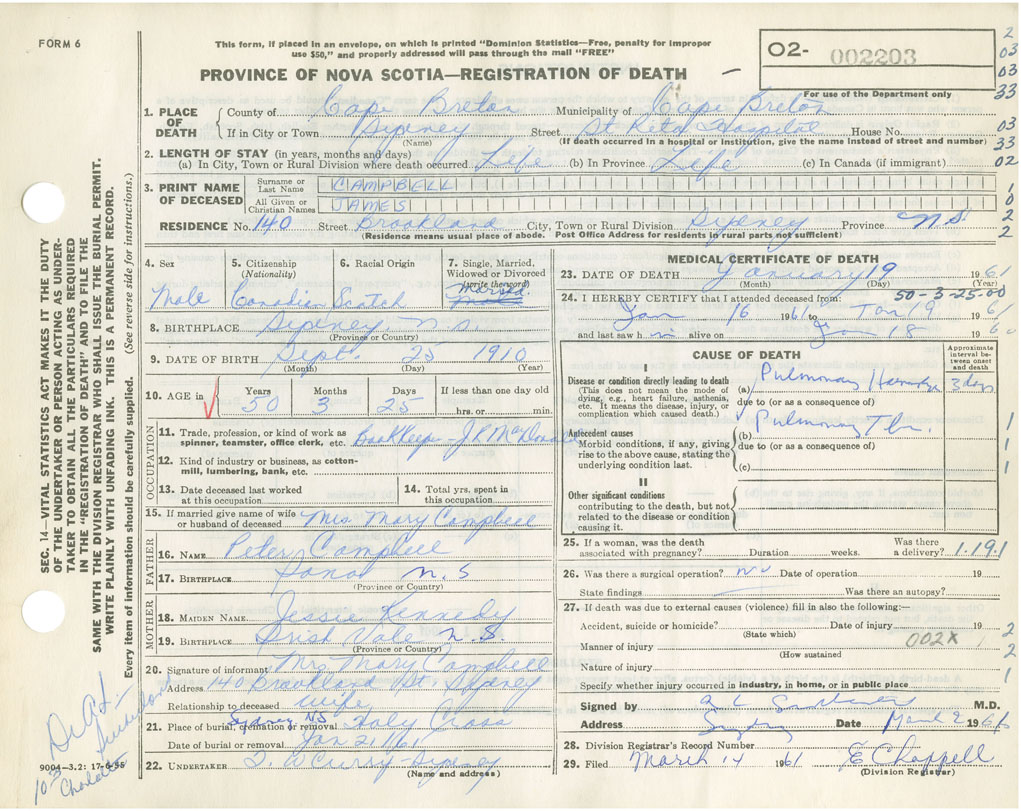 FORM 6
This form, if placed in an envelope, on which is printed "Dominion Statistics—Free, penalty for improper
use $50," and properly addressed will pass through the mail "FREE"
O2- 002203
For use of the Department only
PROVINCE OF NOVA SCOTIA—REGISTRATION OF DEATH
2
03
03
33
03
33
02
1
0
2
2
1. PLACE OF DEATH
County of Cape Breton Municipality of Cape Breton
If in City or Town Sydney Street St Rita Hospital House No.
(Name) (If death occurred in a hospital or institution, give the name instead of street and number)
2. LENGTH OF STAY (in years, months and days)
(a) In City, Town or Rural Division where death occurred Life (b) In Province Life (c) In Canada (if immigrant)
3. PRINT NAME OF DECEASED
Surname or Last Name CAMPBELL
All Given or Christian Names JAMES
RESIDENCE No. 140 Street Brookland City, Town or Rural Division Sydney Province N.S.
(Residence means usual place of abode. Post Office Address for residents in rural parts not sufficient)
4. Sex
Male
5. Citizenship
(Nationality)
Canadian
6. Racial Origin
Scotch
7. Single, Married,
Widowed or Divorced
(write the word)
Married
8. BIRTHPLACE Sydney, N.S.
(Province or Country)
9. DATE OF BIRTH Sept. 25 1910
(Month) (Day) (Year)
10. AGE in
Years Months Days If less than one day old
50 3 25 hrs. or min.
OCCUPATION
11. Trade, profession, or kind of work as
spinner, teamster, office clerk, etc. Bookkeeper
12. Kind of industry or business, as cotton-
mill, lumbering, bank, etc.
13. Date deceased last worked
at this occupation
14. Total yrs. spent in
this occupation
15. If married give name of wife
or husband of deceased Mrs Mary Campbell
FATHER
16. NAME Peter Campbell
17. BIRTHPLACE N.S
(Province or Country)
MOTHER
18. MAIDEN NAME Jessie Kennedy
19. BIRTHPLACE Irish Vale N.S.
(Province or Country)
20. Signature of informant Mrs Mary Campbell
Address 140 Brookland St. Sydney
Relationship to deceased Wife
21. Place of burial, cremation or removal Sydney NS Holy Cross
Date of burial or removal Jan 21/61
22. UNDERTAKER Curry - Sydney
(Name and address)
MEDICAL CERTIFICATE OF DEATH
23. DATE OF DEATH January 19 1961
(Month) (Day) (Year)
50-3-25-00
24. I HEREBY CERTIFY that I attended deceased from:
Jan 16 1961 to Jan 19 1961
and last saw h im alive on Jan 18 1960
CAUSE OF DEATH
Approximate interval between onset and death
I
Disease or condition directly leading to death
(This does not mean the mode of
dying, e.g., heart failure, asthenia,
etc. It means the disease, injury, or
complication which caused death.)
(a) Pulmonary 3 days
due to (or as a consequence of)
Antecedent causes
Morbid conditions, if any, giving
rise to the above cause, stating the
underlying condition last.
(b) Pulmonary Tb.
due to (or as a consequence of)
(c)
1
1
1
II
Other significant conditions
contributing to the death, but not
related to the disease or condition
causing it.
25. If a woman, was the death
associated with pregnancy? Duration weeks. Was there a delivery? 1.19.1
26. Was there a surgical operation? no Date of operation 19
State findings Was there an autopsy?
27. If death was due to external causes (violence) fill in also the following:—
Accident, suicide or homicide? Date of injury 19
(State which)
Manner of injury 002X
(How sustained)
Nature of injury
Specify whether injury occurred in industry, in home, or in public place
2
2
1
Signed by M.D.
Address Sydney Date March 2 1961
28. Division Registrar's Record Number
29. Filed March 14 1961 E Chappell
(Division Registrar)
SEC. 14—VITAL STATISTICS ACT MAKES IT THE DUTY
OF THE UNDERTAKER OR PERSON ACTING AS UNDER-
TAKER TO OBTAIN ALL THE PARTICULARS REQUIRED
IN THE "REGISTRATION OF DEATH" AND TO FILE THE
SAME WITH THE DIVISION REGISTRAR WHO SHALL ISSUE THE BURIAL PERMIT.
WRITE PLAINLY WITH UNFADING INK. THIS IS A PERMANENT RECORD.
Every item of information should be carefully supplied. (See reverse side for instructions.)
9004-3.2: 17-6-55